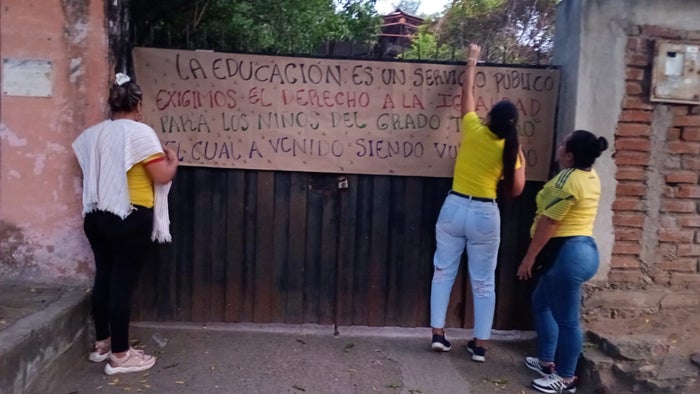 LA EDUCACIÓN ES UN SERVICIO PÚBLICO
EXIGIMOS EL DERECHO A LA IGUALDAD
PARA LOS NIÑOS DEL GRADO
EL CUAL A VENIDO SIENDO